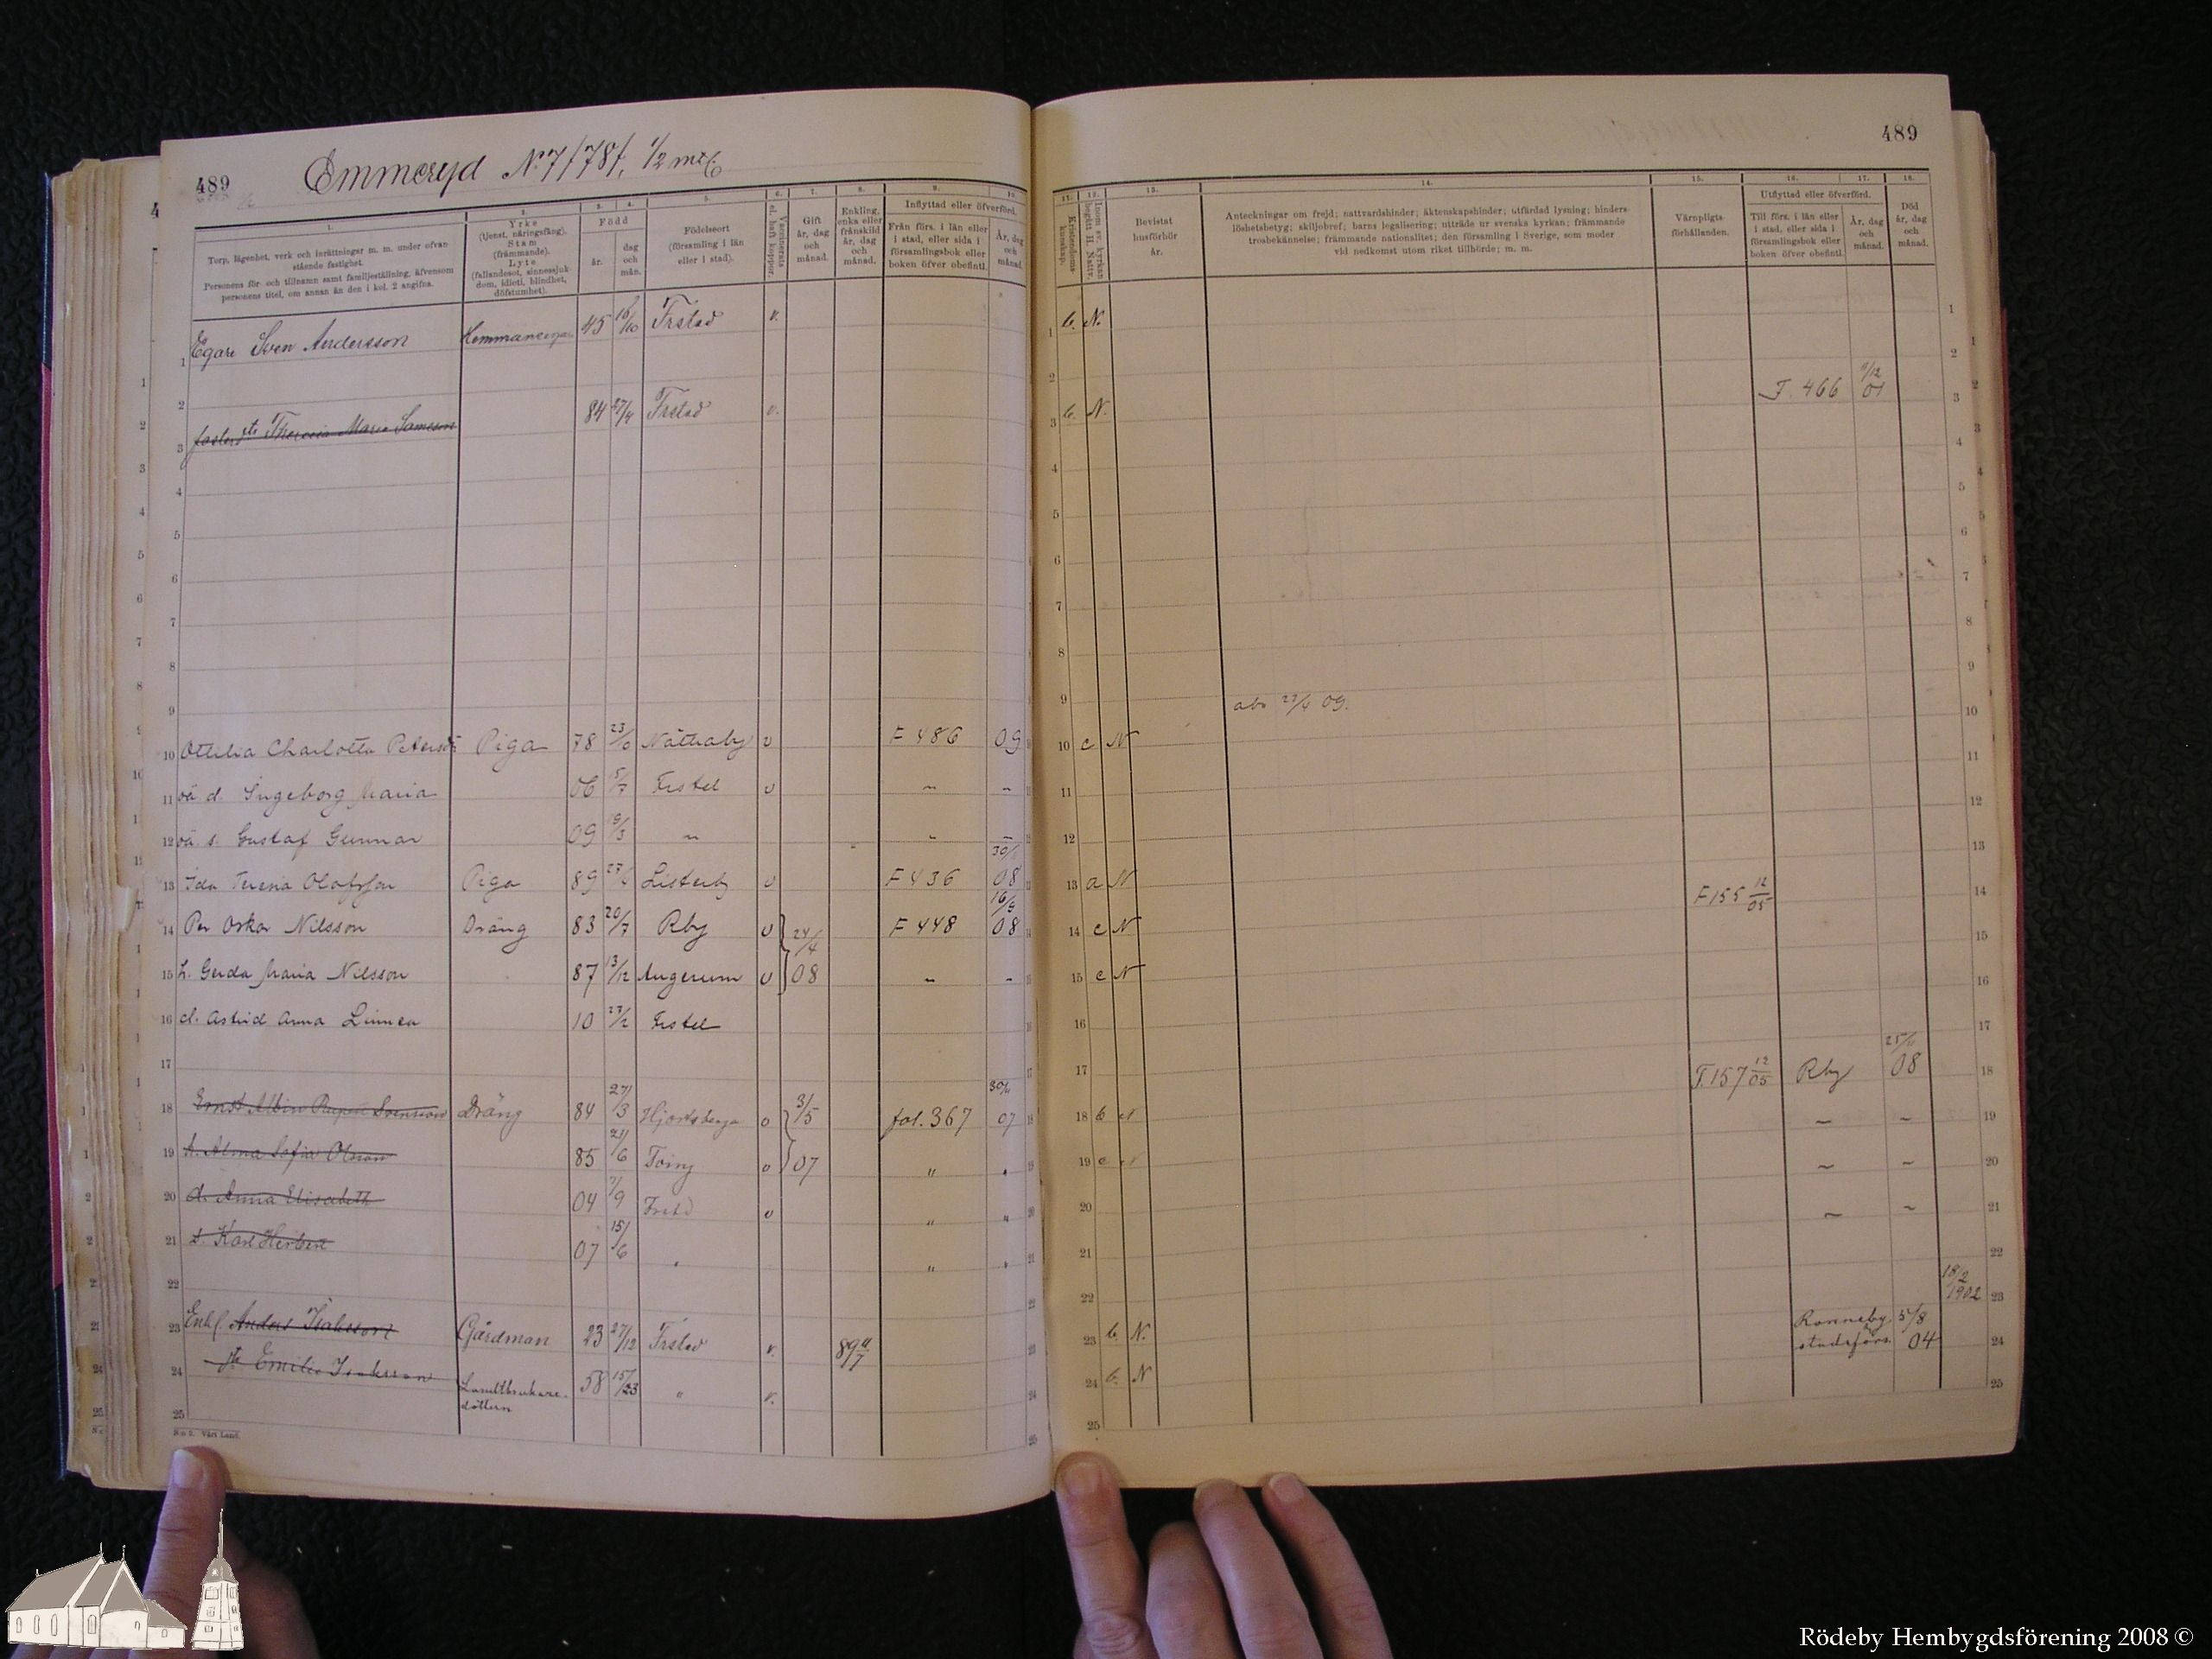 489
Emmeryd N:7/78/, 1/2 mtl
489
1.
Torp, lägenhet, verk och inrättningar m. m. under ofvan stående fastighet.
Personens för- och tillnamn samt familjeställning, äfvensom personens titel, om annan än den i kol. 2 angifna.
2.
Yrke
(tjenst, näringsfång).
Stam
(främmande).
Lyte
(fallandesot, sinnessjuk-
dom, idioti, blindhet,
döfstumhet).
3. 4.
Född
år.
dag
och
mån.
5.
Födelseort
(församling i län
eller i stad).
6.
Vaccinerats
el. haft koppor.
7.
Gift
år, dag
och
månad.
8.
Enkling,
enka eller
frånskild
år, dag
och
månad.
9. 10.
Inflyttad eller öfverförd.
Från förs. i län eller
i stad, eller sida i
församlingsbok eller
boken öfver obefintl.
År, dag
och
månad.
11.
Kristendoms-
kunskap.
12.
Inom sv. kyrkan
begått H. Nattv.
13.
Bevistat
husförhör
år.
14.
Anteckningar om frejd; nattvardshinder; äktenskapshinder; utfärdad lysning; hinders-
löshetsbetyg; skiljobref; barns legalisering; utträde ur svenska kyrkan; främmande
trosbekännelse; främmande nationalitet; den församling i Sverige, som moder
vid nedkomst utom riket tillhörde; m. m.
15.
Värnpligts-
förhållanden.
16. 17.
Utflyttad eller öfverförd.
Till förs. i län eller
i stad, eller sida i
församlingsbok eller
boken öfver obefintl.
År, dag
och
månad.
18.
Död
år, dag
och
månad.
1 Egare Sven Andersson Hemmansegare 45 16/10 Frstad v. 1 b. N.
2
3 Theresia Maria 84 27/4 Frstad v. 3 b. N. F. 466 11/12 01
4
5
6
7
8
9
abs 22/4 09.
10 Ottilia Charlotta Petersd Piga 78 23/10 Nättraby v F 486 09 10 c N
11 oä. d. Ingeborg Maria 06 15/7 Frstel v " "
12 oä. s. Gustaf Gunnar 09 19/3 " " "
13 Ida Teresia Olofsson Piga 89 Listerby v F 436 30/ 08 13 a N
14 Per Oskar Nilsson Dräng 83 20/7 Rby v 24/4 F 448 16/9 08 14 c N F 155 12/05
15 h. Gerda Maria Nilsson 87 13/12 Augerum v 08 " " 15 c N
16 d. Astrid Anna Linnea 10 27/2 Frstel
17
18 Ernst Albin Svensson Dräng 84 27/3 Hjortsberga v 3/5 fol. 367 30/ 07 18 b N F. 157 12/05 Rby 25/11 08
19 h. Alma Sofia Olsson 85 21/6 Torny v 07 " " 19 c N " "
20 d. Anna Elisabeth 04 7/9 Frstd v " " " "
21 s. Karl Herbert 07 15/6 " " " " "
22
23 Enkl. Anders Isaksson Gårdman 23 27/12 Frstad v. 89 23 b. N. 18/2 1902
24 Emilia Isaksson Landtbrukare-
dottern 58 " v. 24 b. N Ronneby
stadsförs. 5/8 04
25
N:o 2. Vårt Land.
Rödeby Hembygdsförening 2008 ©